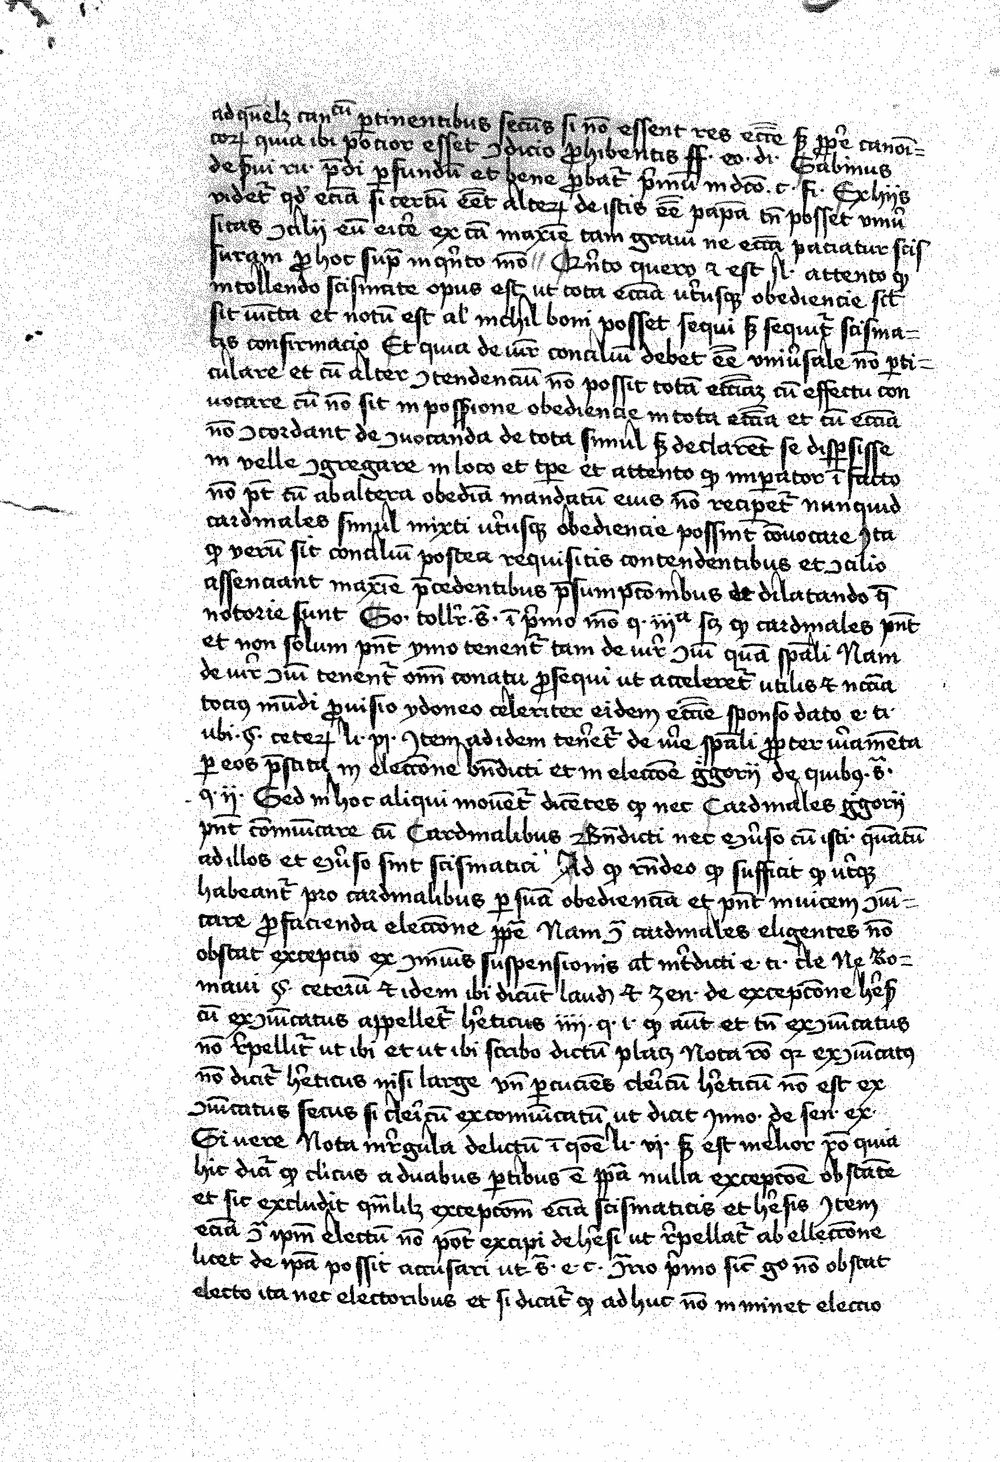 ad quēlꝫ can cū ꝑtinentibus secus si nō essent res eccīe sꝫ ꝓpr̄e canoni=
coꝝ quia ibi pocior esset ꝯdicio ꝓhibentis ff. eo. di. Sabinus
de ꝑui ru. p̄di ꝑ fundū et bene ꝓbat᷑ p̄mū in dc̄o. c. fi. Ex hiis
videt᷑ qd̓ eciā si certū eēt alteꝝ de istis eē papā tn̄ posset vniu̓
sitas ꝯcilii eū eicē ex cā maxīe tam graui ne eccīa paciatur scis
suram ꝓ hoc sup̄ in qn̄to mō // Qn̄to quero ⁊ est attento ꝙ
in tollendo scismate opus est ut tota eccīa utr̓usqꝫ obediencie sit
sit iūcta et notū est al̓ nichil boni posset sequi sꝫ sequit᷑ scisma=
tis confirmacio Et quia de iur̄ conciliū debet eē vniu̓sale nō ꝑti=
culare et cū alter ꝯtendenciū nō possit totā eccīaꝫ cū effectu con
uocare cū nō sit in possessione obediencie in tota eccīa et cū eccīa
nō ꝯcordant de ꝯuocanda de tota simul sꝫ declarēt se disꝑsisse
in velle ꝯgregare in loco et tꝑe et attento ꝙ imꝑator ī facto
nō pt̄ cū ab altera obediā mandatū eius nō recipet᷑ nunquid
cardinales simul mixti utr̓usqꝫ obediencie possint cōuocare Ita
ꝙ verū sit conciliū postea requisitis contendentibus et ꝯcilio
assenciant maxīe p̄cedentibus p̄sumpcōnibus et dilatando q̄
notorie sunt So. tollr̄. s̄. ī p̄mo mō q. iiiᵃ scꝫ ꝙ cardinales pn̄t
et non solum pn̄t ymo tenent᷑ tam de iur̄ ꝯūi quā sp̄ali Nam
de iur̄ ꝯūi tenent᷑ omī conatu ꝓsequi ut acceleret᷑ utilis ⁊ nccīa
tociꝰ mūdi ꝓuisio ydoneo celeriter eidem eccīe sponso dato e. ti.
ubi. §. ceteꝝ li. vi. Item ad idem tenēt᷑ de iur̄e sp̄ali ꝓpter iur̄amēta
ꝑ eos p̄stita in eleccōne bn̄dicti et in eleccōe ḡgorii de quibꝰ. s̄.
q. ii. Sed in hoc aliqui mouēt᷑ dicētes ꝙ nec Cardinales ḡgorii
pn̄t cōmūicare cū Cardinalibus Bn̄dicti nec eu̓so cū isti. quātū
ad illos et eu̓so sint scismatici Ad ꝙ rn̄deo ꝙ sufficit ꝙ utr̓qꝫ
habeant᷑ pro cardinalibus ꝑ suā obedienciā et pn̄t inuicem ꝯūi=
care ꝓ facienda eleccōne ppē Nam ꝯ̄ cardinales eligentes nō
obstat excepcio ex ꝯmīnis suspensionis al̓ intr̄dicti e. ti. cle Ne Ro=
mani §. ceterū ⁊ idem ibi dicūt laud ⁊ Zen. de excepcōne her̄s
cū exꝯūicatus appellet᷑ her̄ticus iiii. q. i. ꝙ aūt et tn̄ exꝯūicatus
nō r̄pellit᷑ ut ibi et ut ibi scribo dictū placꝫ Nota rō qꝛ exꝯūicatꝰ
nō dicit᷑ her̄ticus nisi large vn̄ ꝑcuciēs cler̄icū her̄ticū nō est ex
ꝯūicatus secus si cler̄icū excomūicatū ut dicit Inno. de sen. ex.
Si vere Nota in r̄gula delictū ī qōe li. vi. sꝫ est melior rō quia
hic dicit᷑ ꝙ clicus a duabus ꝑtibus ē ppā nulla excepcōe obstāte
et sic excludit qm̄libꝫ excepcōnē eciā scismaticis et her̄sis Item
eciā ꝯ̄ ipm̄ electū nō pōt excipi de her̄si ut r̄pellat᷑ ab elleccōne
licet de ipā possit accusari ut s̄. e. c. ꝯ̄rio p̄mo sic̄ go nō obstat
electo ita nec electoribus et si dicat᷑ ꝙ ad huc nō inminet eleccio